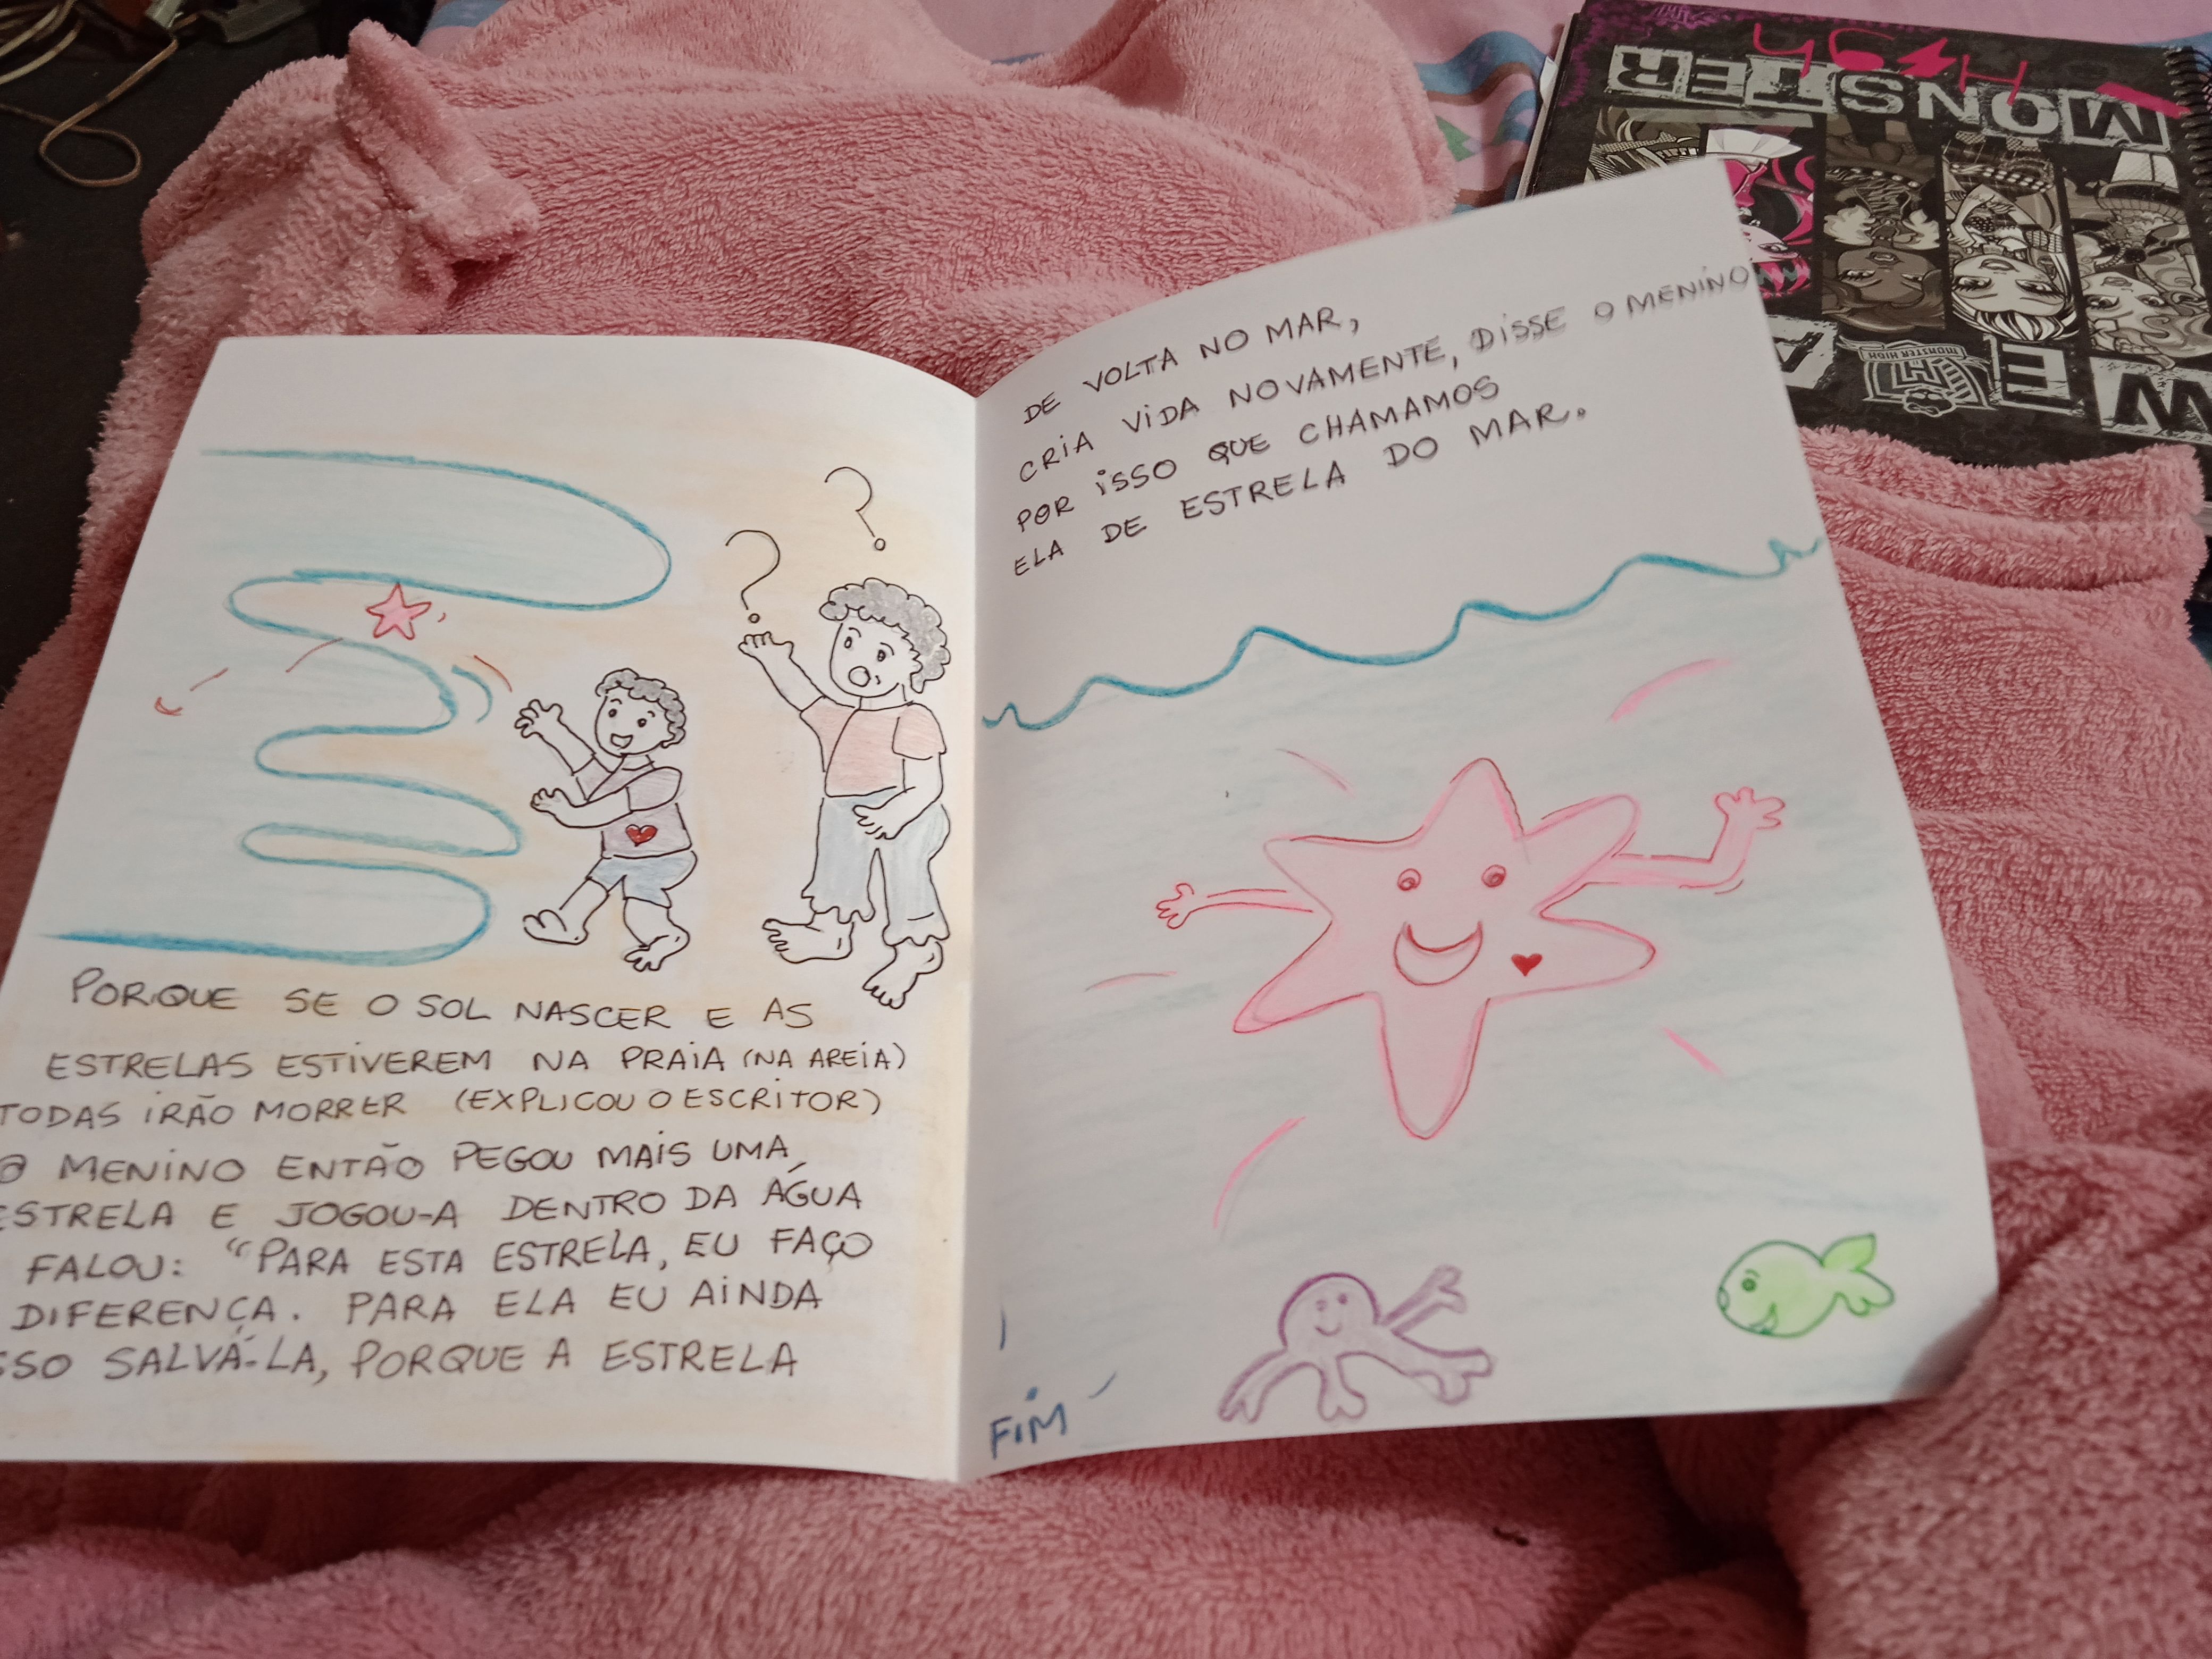 PORQUE SE O SOL NASCER E AS
ESTRELAS ESTIVEREM NA PRAIA (NA AREIA)
TODAS IRÃO MORRER (EXPLICOU O ESCRITOR)
O MENINO ENTÃO PEGOU MAIS UMA
ESTRELA E JOGOU-A DENTRO DA ÁGUA
FALOU: "PARA ESTA ESTRELA, EU FAÇO
DIFERENÇA. PARA ELA EU AINDA
SSO SALVÁ-LA, PORQUE A ESTRELA
DE VOLTA NO MAR,
CRIA VIDA NOVAMENTE, DISSE O MENINO
POR ISSO QUE CHAMAMOS
ELA DE ESTRELA DO MAR.
? ?
FIM
MONSTER
HIGH
MONSTER HIGH
WE A